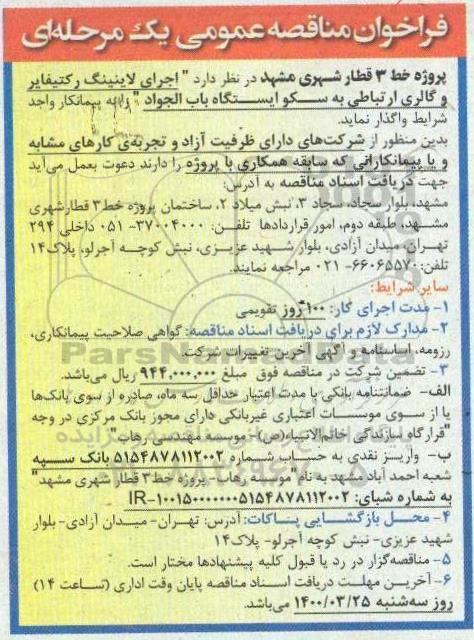 فراخوان مناقصه عمومی یک مرحله‌ای
پروژه خط ۳ قطار شهری مشهد در نظر دارد " اجرای لاینینگ رکتیفایر
و گالری ارتباطی به سکو ایستگاه باب الجواد " را به پیمانکار واجد
شرایط واگذار نماید.
بدین منظور از شرکت‌های دارای ظرفیت آزاد و تجربه‌ی کارهای مشابه
و یا پیمانکارانی که سابقه همکاری با پروژه را دارند دعوت بعمل می‌آید
جهت دریافت اسناد مناقصه به آدرس:
مشهد، بلوار سجاد، سجاد ۳، نبش میلاد ۲، ساختمان پروژه خط ۳ قطارشهری
مشهد، طبقه دوم، امور قراردادها تلفن: ۳۷۰۰۴۰۰۰- ۰۵۱ داخلی ۲۹۴
تهران، میدان آزادی، بلوار شهید عزیزی، نبش کوچه آجرلو، پلاک۱۴
تلفن: ۶۶۰۶۵۵۷۰- ۰۲۱ مراجعه نمایند.
سایر شرایط:
۱- مدت اجرای کار: ۱۰۰ روز تقویمی
۲- مدارک لازم برای دریافت اسناد مناقصه: گواهی صلاحیت پیمانکاری،
رزومه، اساسنامه و آگهی آخرین تغییرات شرکت.
۳- تضمین شرکت در مناقصه فوق مبلغ ۹۴۴,۰۰۰,۰۰۰ ریال می‌باشد.
الف- ضمانتنامه بانکی با مدت اعتبار حداقل سه ماه، صادره از سوی بانک‌ها
یا از سوی موسسات اعتباری غیربانکی دارای مجوز بانک مرکزی در وجه
"قرارگاه سازندگی خاتم‌الانبیاء(ص)- موسسه مهندسی رهاب"
ب- واریز نقدی به حساب شماره ۵۱۵۴۸۷۸۱۱۲۰۰۲ بانک سپه
شعبه احمد آباد مشهد به نام "موسسه رهاب- پروژه خط ۳ قطار شهری مشهد"
به شماره شبای: IR-۱۰۰۱۵۰۰۰۰۰۰۵۱۵۴۸۷۸۱۱۲۰۰۲
۴- محل بازگشایی پاکات: آدرس: تهران- میدان آزادی- بلوار
شهید عزیزی- نبش کوچه آجرلو- پلاک۱۴
۵- مناقصه‌گزار در رد یا قبول کلیه پیشنهادها مختار است.
۶- آخرین مهلت دریافت اسناد مناقصه پایان وقت اداری (ساعت ۱۴)
روز سه‌شنبه ۱۴۰۰/۰۳/۲۵ می‌باشد.